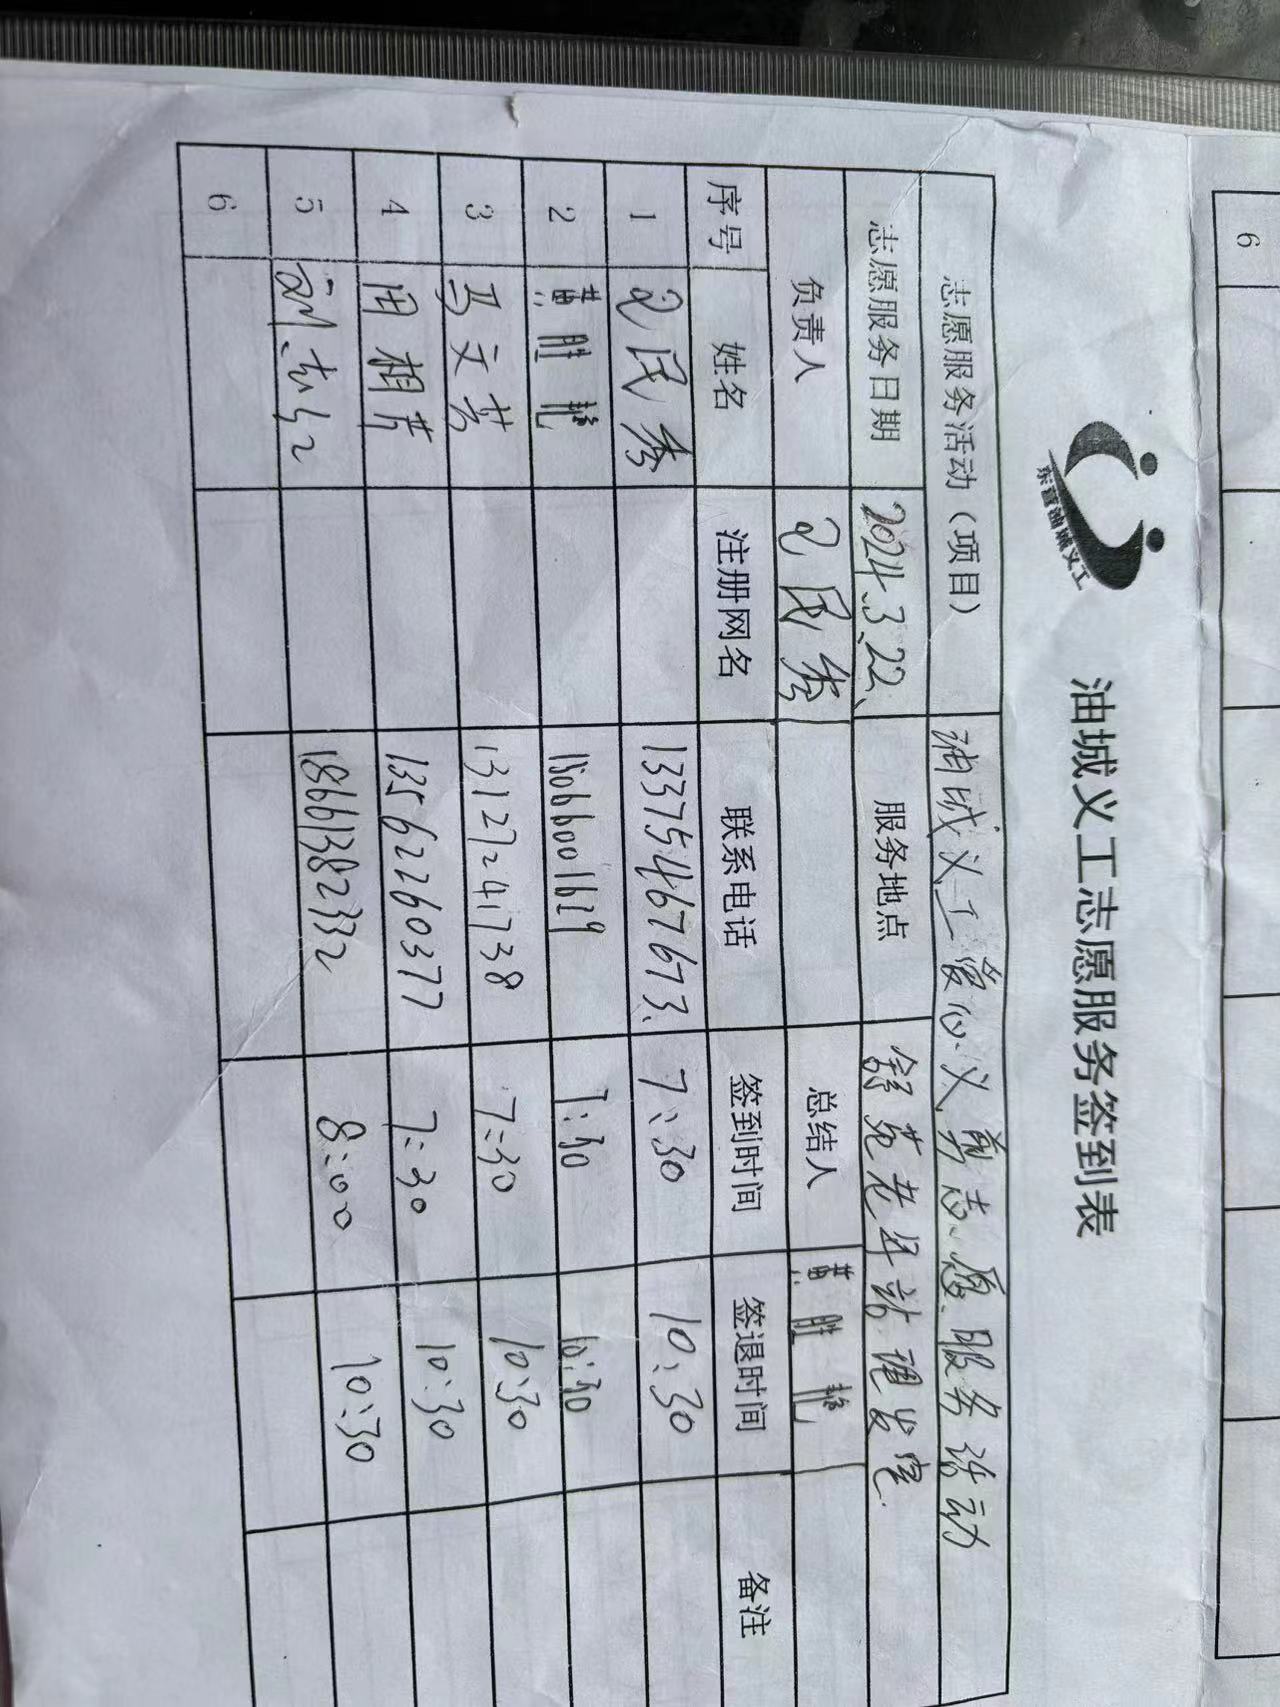 东营油城义工
油城义工志愿服务签到表
志愿服务活动（项目） 油城义工爱心义剪志愿服务活动
志愿服务日期 2024.3.22、 服务地点 锦苑老年站理发室
负责人 民秀 总结人 黄胜艳
序号 姓名 注册网名 联系电话 签到时间 签退时间 备注
1 民秀 13375467673、 7:30 10:30
2 黄胜艳 15066001629 7:30 10:30
3 马文芳 13127241738 7:30 10:30
4 田相芹 13562260377 7:30 10:30
5 刘志红 18661382332 8:00 10:30
6
6